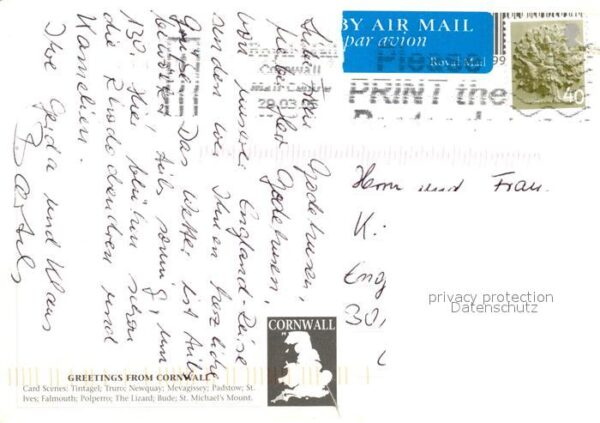 BY AIR MAIL
par avion
Royal Mail
CORNWALL
Mail Centre
Please
PRINT the
40
Liebe Frau
lieber Herr
von unserer England-Reise
senden wir Ihnen herzliche
Grüße. Das Wetter ist teils
bewölkt, teils sonnig, um
13°. Hier blühen schon
die Rhododendren und
Kamelien.
Ihre Gerda und Klaus
Herrn und Frau
K.
Eng
30,
privacy protection
Datenschutz
CORNWALL
GREETINGS FROM CORNWALL
Card Scenes: Tintagel; Truro; Newquay; Mevagissey; Padstow; St.
Ives; Falmouth; Polperro; The Lizard; Bude; St. Michael's Mount.